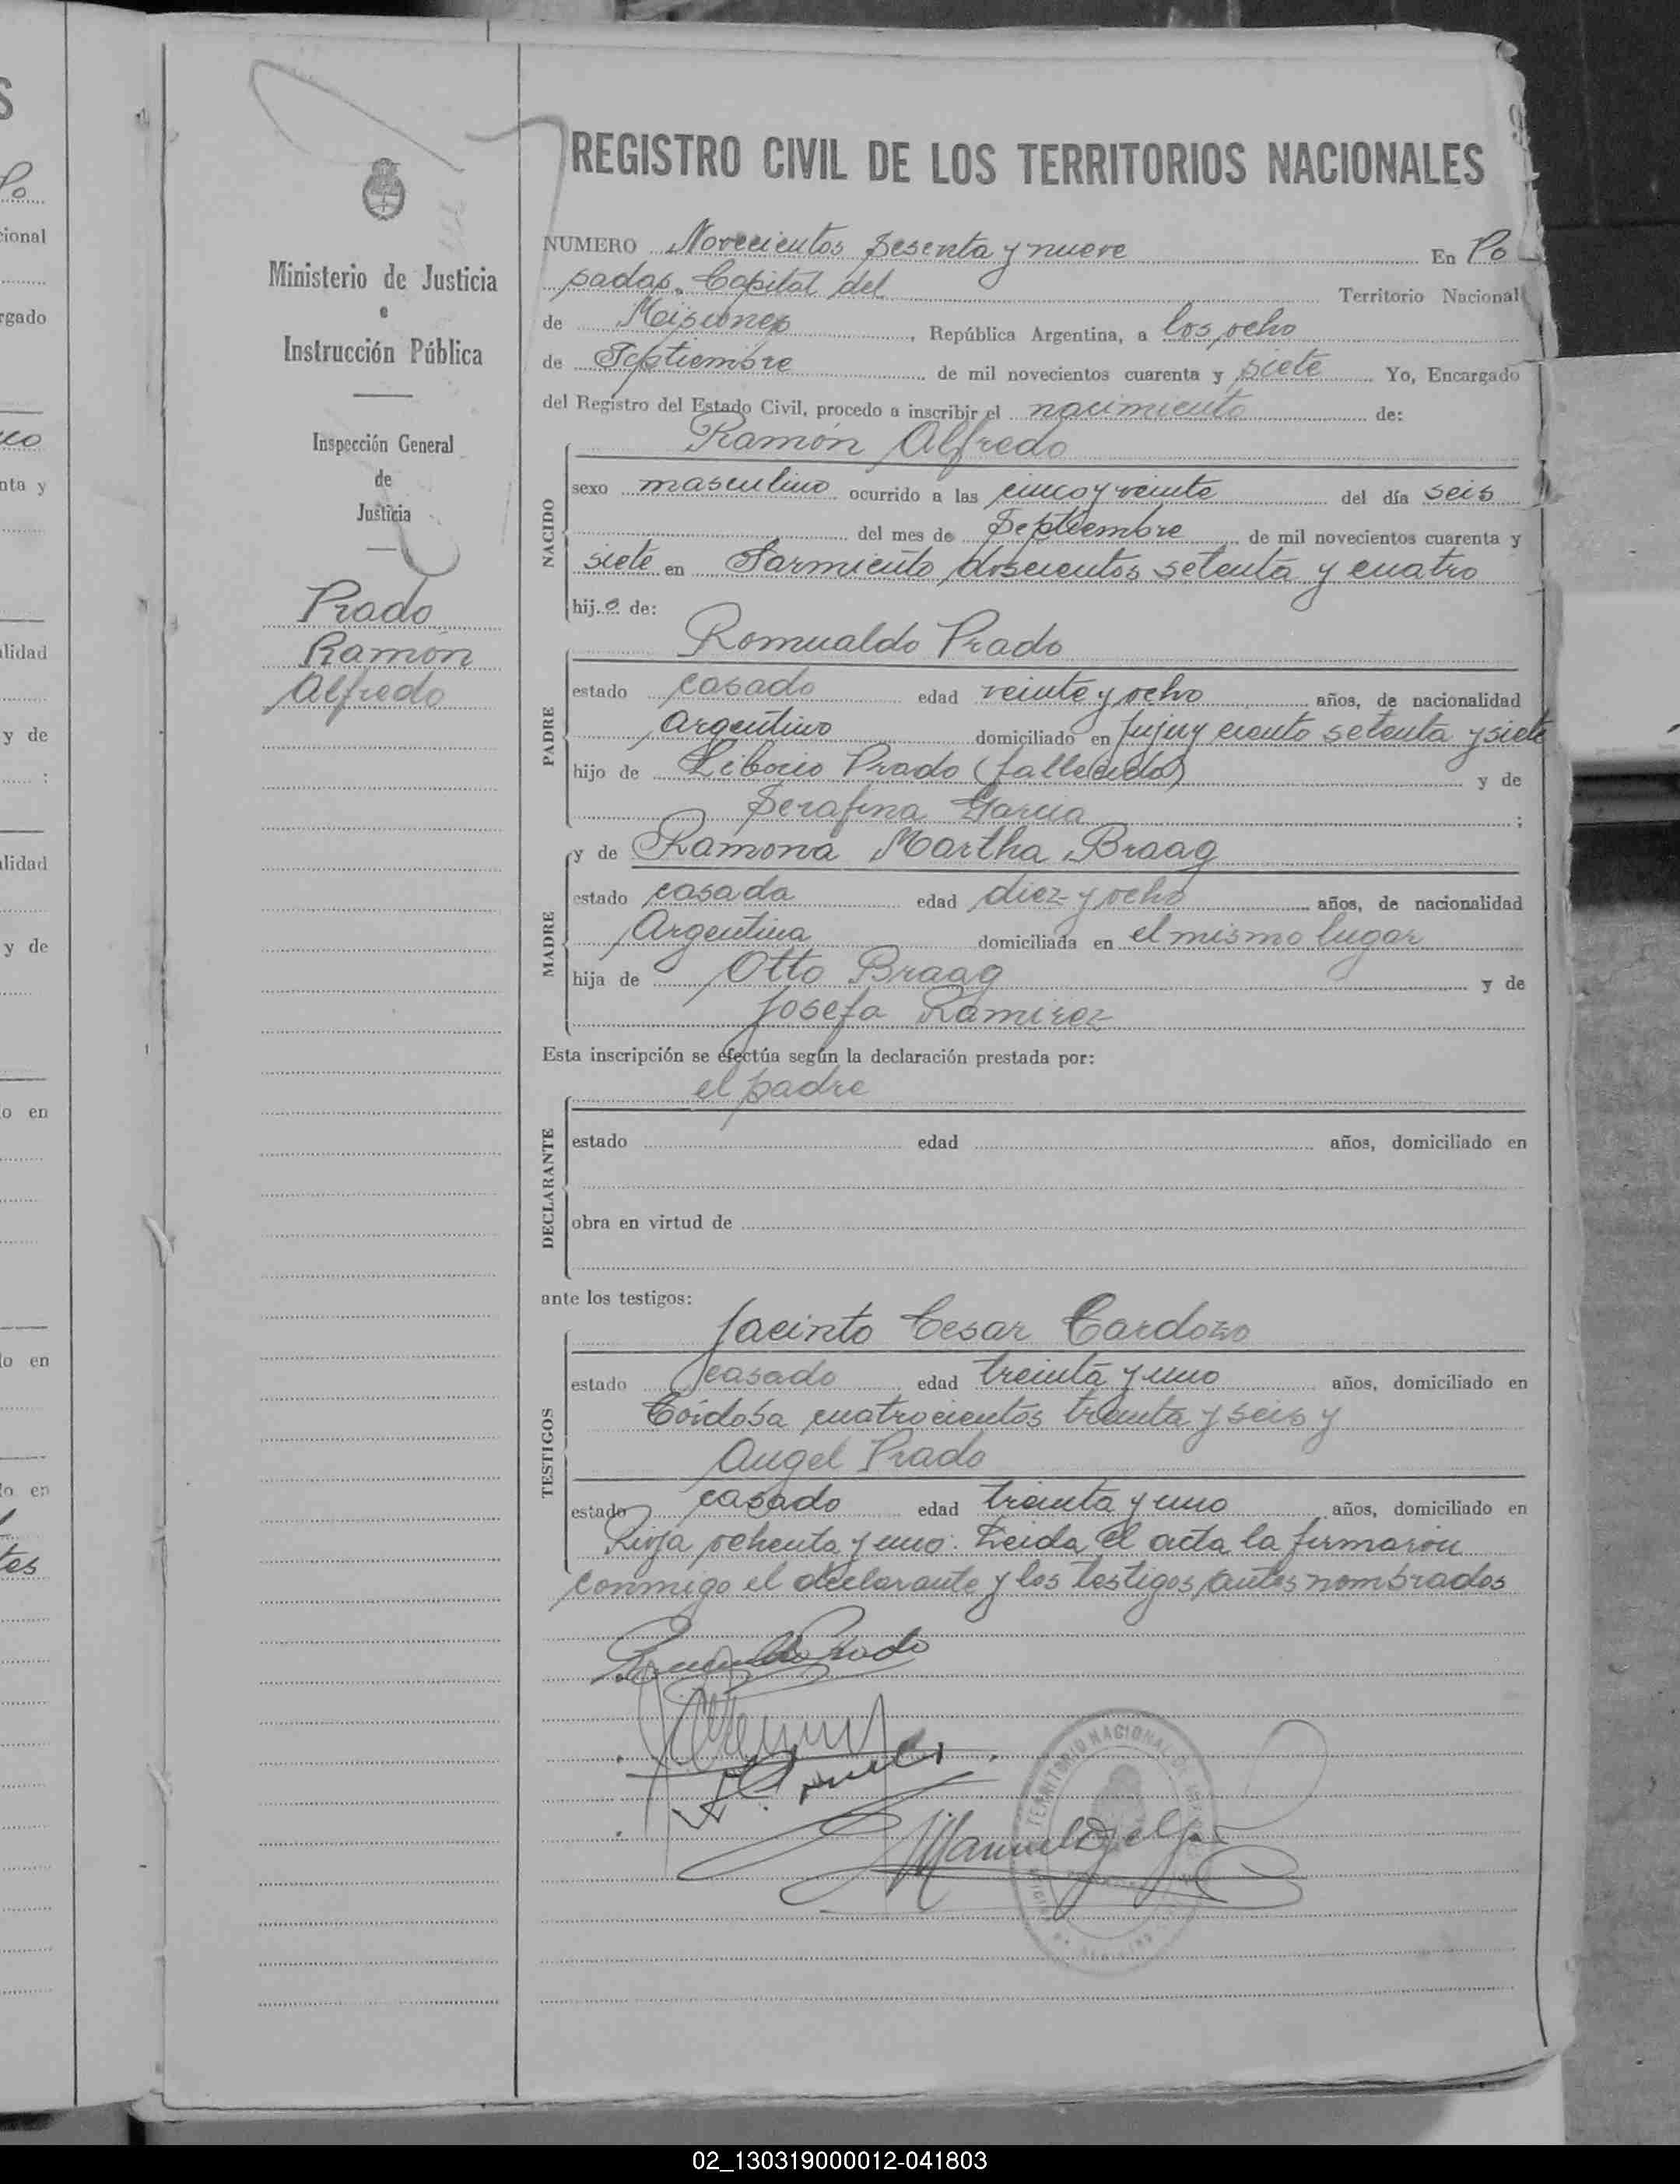 S
Po
cional
rgado
nta y
lidad
y de
lidad
y de
o en
lo en
lo en
tes
Ministerio de Justicia
e
Instrucción Pública
Inspección General
de
Justicia
Prado
Ramón
Alfredo
REGISTRO CIVIL DE LOS TERRITORIOS NACIONALES
NUMERO Novecientos Sesenta y nueve En Po
sadas. Capital del Territorio Nacional
de Misiones, República Argentina, a los ocho
de Septiembre de mil novecientos cuarenta y siete Yo, Encargado
del Registro del Estado Civil, procedo a inscribir el nacimiento de:
Ramón Alfredo
NACIDO
sexo masculino ocurrido a las cinco y veinte del día seis
del mes de Septiembre de mil novecientos cuarenta y
siete en Sarmiento doscientos setenta y cuatro
hijo de:
Romualdo Prado
PADRE
estado casado edad veinte y ocho años, de nacionalidad
Argentino domiciliado en Jujuy ciento setenta y siete
hijo de Liborio Prado (fallecido) y de
Serafina Garcia ;
y de Ramona Martha Braag
MADRE
estado casada edad diez y ocho años, de nacionalidad
Argentina domiciliada en el mismo lugar
hija de Otto Braag y de
Josefa Ramirez
Esta inscripción se efectúa según la declaración prestada por:
el padre
DECLARANTE
estado edad años, domiciliado en
obra en virtud de
ante los testigos:
Jacinto Cesar Cardozo
TESTIGOS
estado casado edad treinta y uno años, domiciliado en
Córdoba cuatrocientos treinta y seis y
Angel Prado
estado casado edad treinta y uno años, domiciliado en
Rioja ochenta y uno. Leida el acta la firmaron
conmigo el declarante y los testigos antes nombrados
Romualdo Prado
TERRITORIO NACIONAL DE
02_130319000012-041803